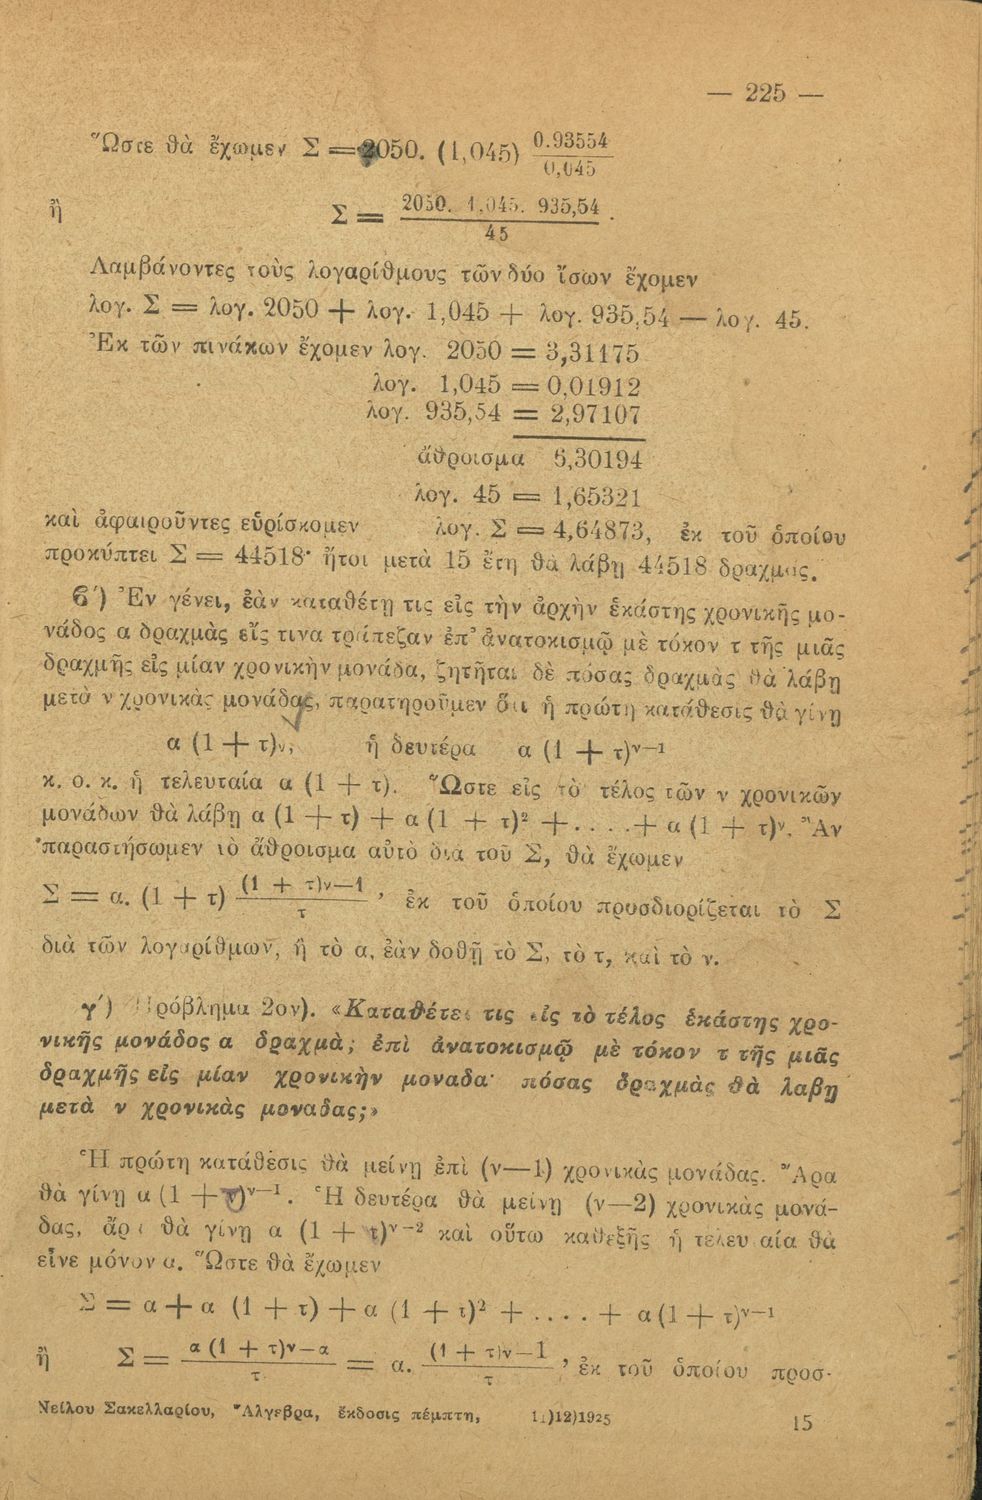 — 225 —
Ὥστε θὰ ἔχωμεν Σ = 2050. (1,045) 0.93554 / 0,045
ἢ Σ = 2050. 1,045. 935,54 / 45 .
Λαμβάνοντες τοὺς λογαρίθμους τῶν δύο ἴσων ἔχομεν
λογ. Σ = λογ. 2050 + λογ. 1,045 + λογ. 935,54 — λογ. 45.
Ἐκ τῶν πινάκων ἔχομεν λογ. 2050 = 3,31175
λογ. 1,045 = 0,01912
λογ. 935,54 = 2,97107
ἄθροισμα 6,30194
λογ. 45 = 1,65321
καὶ ἀφαιροῦντες εὑρίσκομεν λογ. Σ = 4,64873, ἐκ τοῦ ὁποίου
προκύπτει Σ = 44518· ἤτοι μετὰ 15 ἔτη θὰ λάβῃ 44518 δραχμάς.
β΄) Ἐν γένει, ἐὰν καταθέτῃ τις εἰς τὴν ἀρχὴν ἑκάστης χρονικῆς μο-
νάδος α δραχμὰς εἴς τινα τράπεζαν ἐπ᾽ ἀνατοκισμῷ μὲ τόκον τ τῆς μιᾶς
δραχμῆς εἰς μίαν χρονικὴν μονάδα, ζητῆται δὲ πόσας δραχμὰς θὰ λάβῃ
μετὰ ν χρονικὰς μονάδας, παρατηροῦμεν ὅτι ἡ πρώτη κατάθεσις θὰ γίνῃ
α (1 + τ)ν, ἡ δευτέρα α (1 + τ)ν—1
κ. ο. κ. ἡ τελευταία α (1 + τ). Ὥστε εἰς τὸ τέλος τῶν ν χρονικῶν
μονάδων θὰ λάβῃ α (1 + τ) + α (1 + τ)² +. . . .+ α (1 + τ)ν. Ἂν
παραστήσωμεν τὸ ἄθροισμα αὐτὸ διὰ τοῦ Σ, θὰ ἔχωμεν
Σ = α. (1 + τ) (1 + τ)ν—1 / τ , ἐκ τοῦ ὁποίου προσδιορίζεται τὸ Σ
διὰ τῶν λογαρίθμων, ἢ τὸ α, ἐὰν δοθῇ τὸ Σ, τὸ τ, καὶ τὸ ν.
γ΄) Πρόβλημα 2ον). «Καταθέτει τις εἰς τὸ τέλος ἑκάστης χρο-
νικῆς μονάδος α δραχμὰς ἐπὶ ἀνατοκισμῷ μὲ τόκον τ τῆς μιᾶς
δραχμῆς εἰς μίαν χρονικὴν μοναδα· πόσας δραχμὰς θὰ λαβῃ
μετὰ ν χρονικὰς μοναδας;»
Ἡ πρώτη κατάθεσις θὰ μείνῃ ἐπὶ (ν—1) χρονικὰς μονάδας. Ἄρα
θὰ γίνῃ α (1 + τ)ν—1. Ἡ δευτέρα θὰ μείνῃ (ν—2) χρονικὰς μονά-
δας, ἄρα θὰ γίνῃ α (1 + τ)ν—2 καὶ οὕτω καθεξῆς ἡ τελευταία θὰ
εἶνε μόνον α. Ὥστε θὰ ἔχωμεν
Σ = α + α (1 + τ) + α (1 + τ)² + . . . . + α (1 + τ)ν—1
ἢ Σ = α (1 + τ)ν—α / τ = α. (1 + τ)ν—1 / τ , ἐκ τοῦ ὁποίου προσ-
Νείλου Σακελλαρίου, Ἄλγεβρα, ἔκδοσις πέμπτη, )12)1925 15